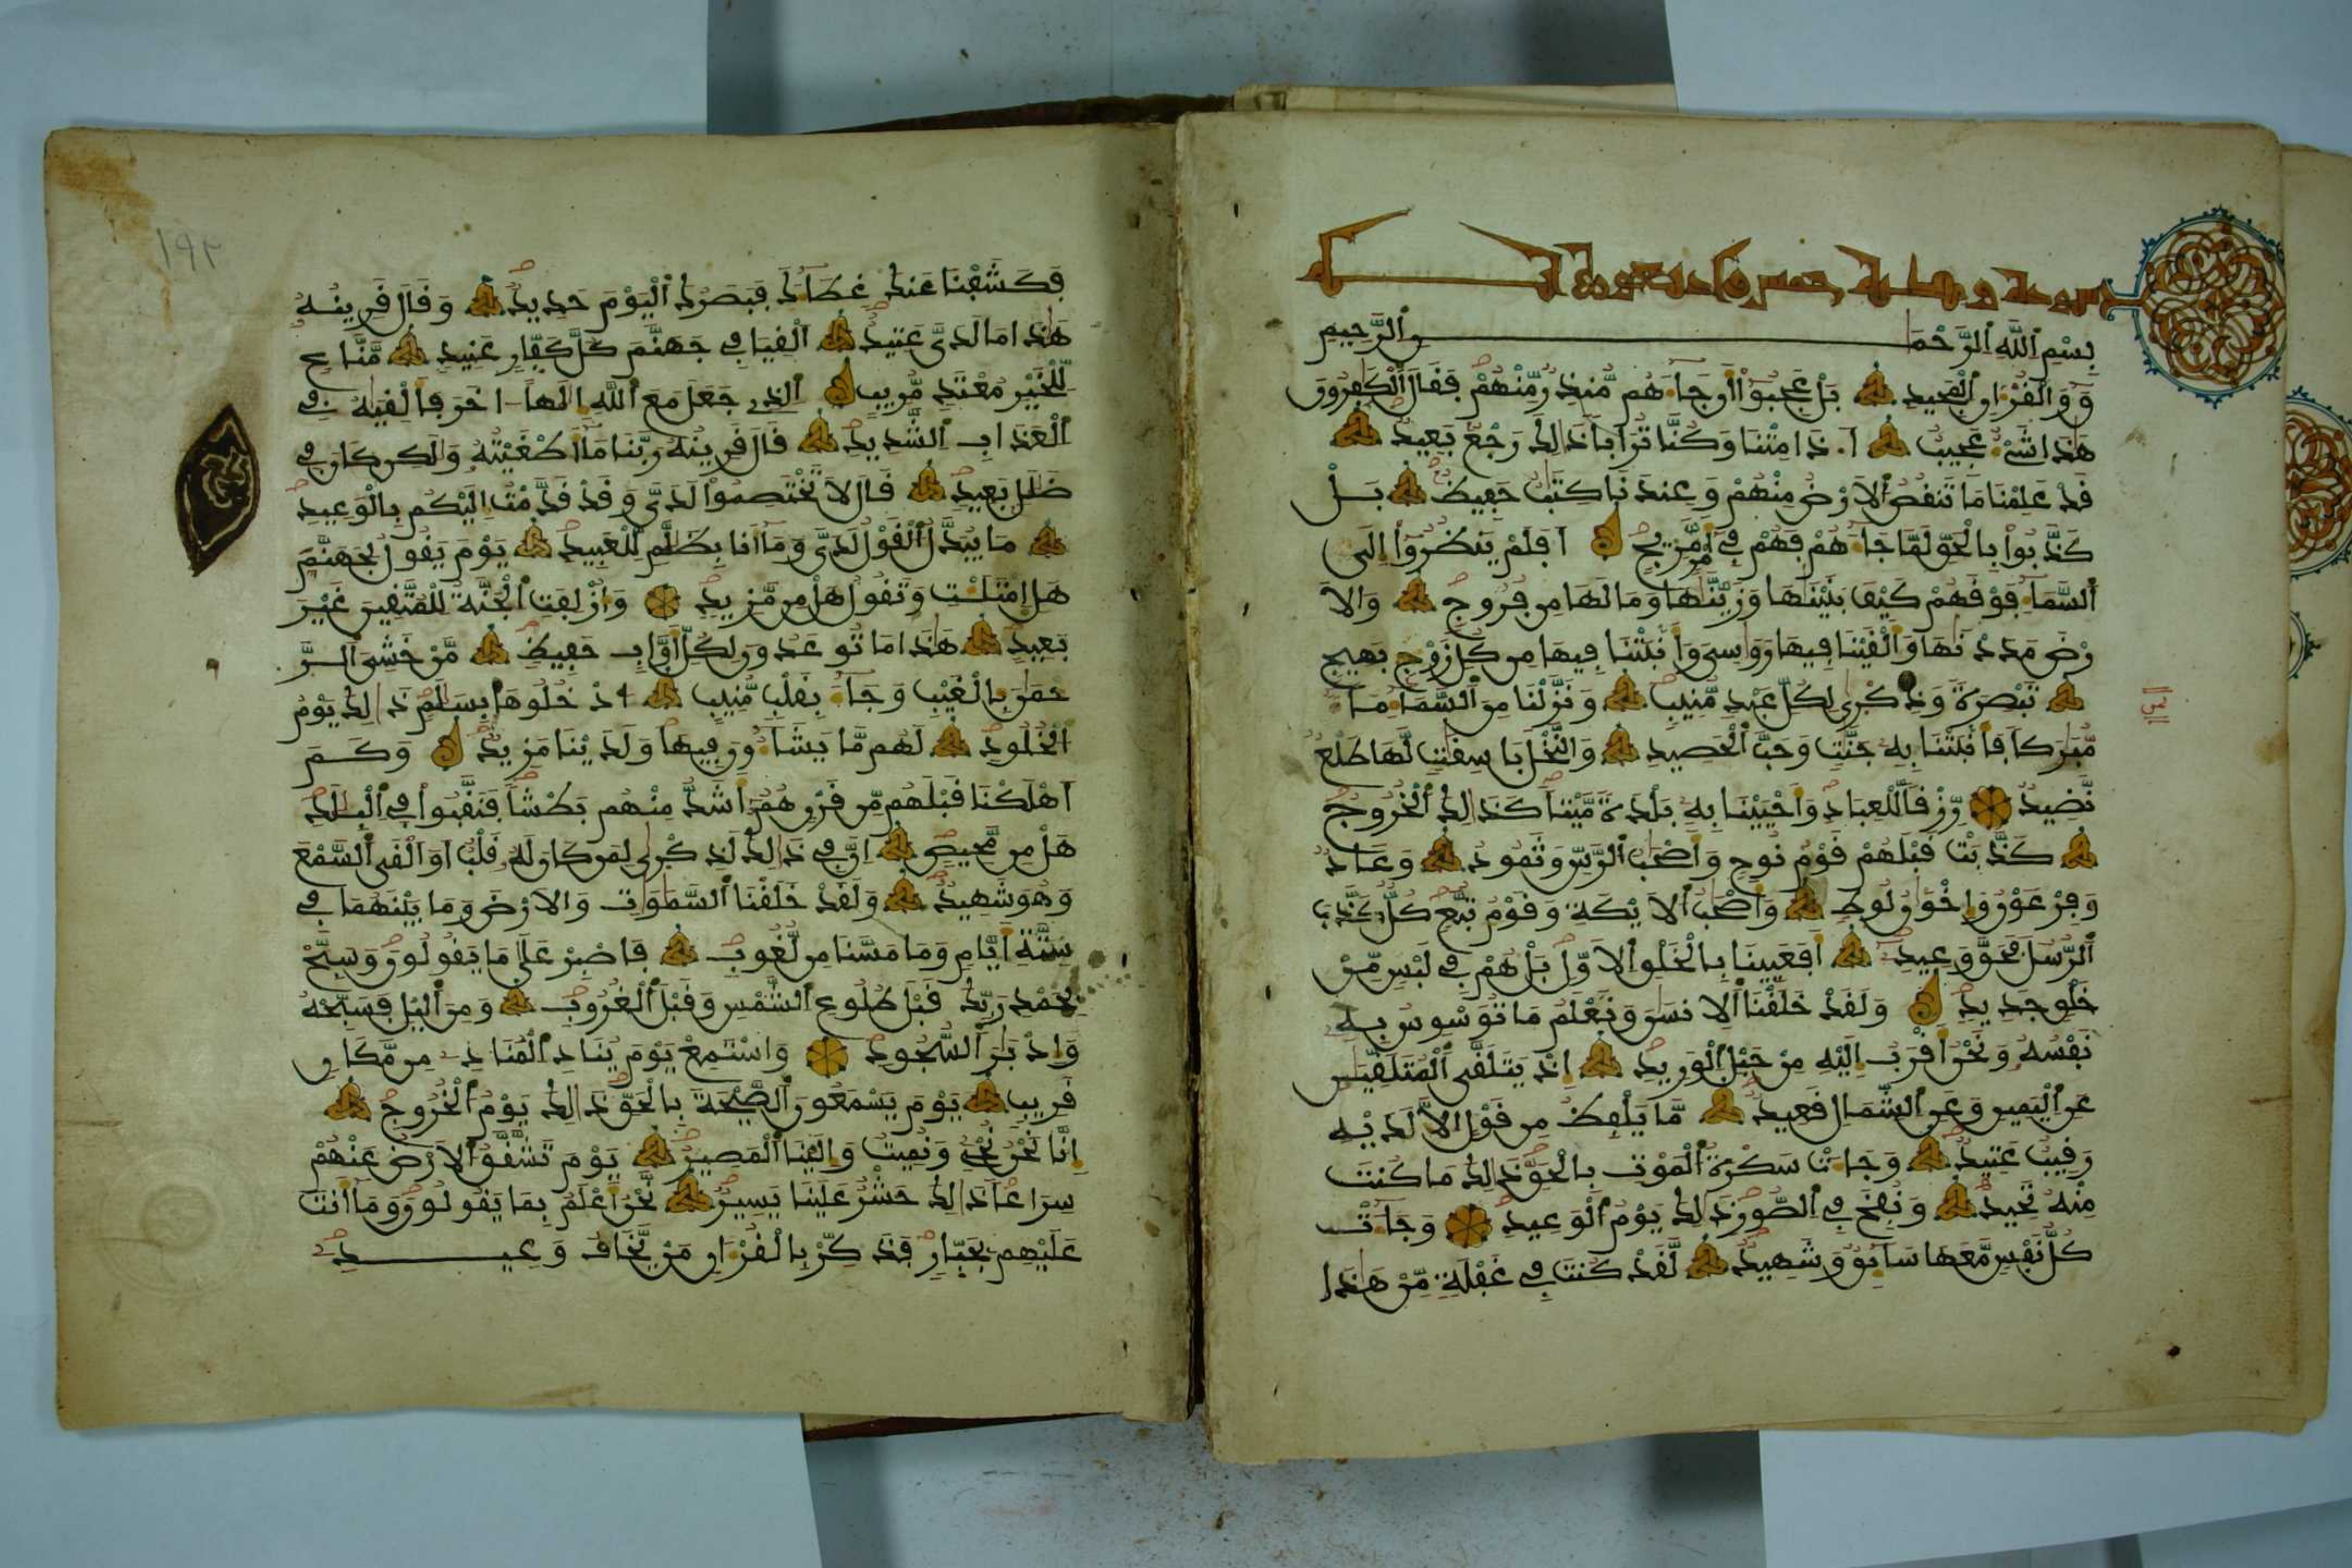 سورة ق مكية خمس وأربعون آية
بِسْمِ ٱللَّهِ ٱلرَّحْمَٰنِ ٱلرَّحِيمِ
قَ وَالْقُرْءَانِ ٱلْمَجِيدِ بَلْ عَجِبُوٓا۟ أَن جَآءَهُم مُّنذِرٌ مِّنْهُمْ فَقَالَ ٱلْكَٰفِرُونَ
هَٰذَا شَىْءٌ عَجِيبٌ أَ.ذَا مِتْنَا وَكُنَّا تُرَابًا ذَٰلِكَ رَجْعٌ بَعِيدٌ
قَدْ عَلِمْنَا مَا تَنقُصُ ٱلَارْضُ مِنْهُمْ وَعِندَنَا كِتَٰبٌ حَفِيظٌ بَلْ
كَذَّبُوا۟ بِالْحَقِّ لَمَّا جَآءَهُمْ فَهُمْ فِىٓ أَمْرٍ مَّرِيجٍ أَفَلَمْ يَنظُرُوٓا۟ إِلَى
ٱلسَّمَآءِ فَوْقَهُمْ كَيْفَ بَنَيْنَٰهَا وَزَيَّنَّٰهَا وَمَا لَهَا مِن فُرُوجٍ وَالَا
رْضَ مَدَدْنَٰهَا وَأَلْقَيْنَا فِيهَا رَوَٰسِىَ وَأَنۢبَتْنَا فِيهَا مِن كُلِّ زَوْجٍۭ بَهِيجٍ
تَبْصِرَةً وَذِكْرَىٰ لِكُلِّ عَبْدٍ مُّنِيبٍ وَنَزَّلْنَا مِنَ ٱلسَّمَآءِ مَآءً
مُّبَٰرَكًا فَأَنۢبَتْنَا بِهِۦ جَنَّٰتٍ وَحَبَّ ٱلْحَصِيدِ وَالنَّخْلَ بَاسِقَٰتٍ لَّهَا طَلْعٌ
نَّضِيدٌ رِّزْقًا لِّلْعِبَادِ وَأَحْيَيْنَا بِهِۦ بَلْدَةً مَّيْتًا كَذَٰلِكَ ٱلْخُرُوجُ
كَذَّبَتْ قَبْلَهُمْ قَوْمُ نُوحٍ وَأَصْحَٰبُ ٱلرَّسِّ وَثَمُودُ وَعَادٌ
وَفِرْعَوْنُ وَإِخْوَٰنُ لُوطٍ وَأَصْحَٰبُ ٱلَايْكَةِ وَقَوْمُ تُبَّعٍ كُلٌّ كَذَّبَ
ٱلرُّسُلَ فَحَقَّ وَعِيدِ أَفَعَيِينَا بِالْخَلْقِ ٱلَاوَّلِ بَلْ هُمْ فِى لَبْسٍ مِّنْ
خَلْقٍ جَدِيدٍ وَلَقَدْ خَلَقْنَا ٱلِانسَٰنَ وَنَعْلَمُ مَا تُوَسْوِسُ بِهِۦ
نَفْسُهُۥ وَنَحْنُ أَقْرَبُ إِلَيْهِ مِنْ حَبْلِ ٱلْوَرِيدِ إِذْ يَتَلَقَّى ٱلْمُتَلَقِّيَٰنِ
عَنِ ٱلْيَمِينِ وَعَنِ ٱلشِّمَالِ قَعِيدٌ مَّا يَلْفِظُ مِن قَوْلٍ إِلَّا لَدَيْهِ
رَقِيبٌ عَتِيدٌ وَجَآءَتْ سَكْرَةُ ٱلْمَوْتِ بِالْحَقِّ ذَٰلِكَ مَا كُنتَ
مِنْهُ تَحِيدُ وَنُفِخَ فِى ٱلصُّورِ ذَٰلِكَ يَوْمُ ٱلْوَعِيدِ وَجَآءَتْ
كُلُّ نَفْسٍ مَّعَهَا سَآئِقٌ وَشَهِيدٌ لَّقَدْ كُنتَ فِى غَفْلَةٍ مِّنْ هَٰذَا
فَكَشَفْنَا عَنكَ غِطَآءَكَ فَبَصَرُكَ ٱلْيَوْمَ حَدِيدٌ وَقَالَ قَرِينُهُۥ
هَٰذَا مَا لَدَىَّ عَتِيدٌ أَلْقِيَا فِى جَهَنَّمَ كُلَّ كَفَّارٍ عَنِيدٍ مَّنَّاعٍ
لِّلْخَيْرِ مُعْتَدٍ مُّرِيبٍ ٱلَّذِى جَعَلَ مَعَ ٱللَّهِ إِلَٰهًا اخَرَ فَأَلْقِيَٰهُ فِى
ٱلْعَذَابِ ٱلشَّدِيدِ قَالَ قَرِينُهُۥ رَبَّنَا مَآ أَطْغَيْتُهُۥ وَلَٰكِن كَانَ فِى
ضَلَٰلٍۭ بَعِيدٍ قَالَ لَا تَخْتَصِمُوا۟ لَدَىَّ وَقَدْ قَدَّمْتُ إِلَيْكُم بِالْوَعِيدِ
مَا يُبَدَّلُ ٱلْقَوْلُ لَدَىَّ وَمَآ أَنَا بِظَلَّٰمٍ لِّلْعَبِيدِ يَوْمَ يَقُولُ لِجَهَنَّمَ
هَلِ ٱمْتَلَأْتِ وَتَقُولُ هَلْ مِن مَّزِيدٍ وَأُزْلِفَتِ ٱلْجَنَّةُ لِلْمُتَّقِينَ غَيْرَ
بَعِيدٍ هَٰذَا مَا تُوعَدُونَ لِكُلِّ أَوَّابٍ حَفِيظٍ مَّنْ خَشِىَ ٱلرَّ
حْمَٰنَ بِالْغَيْبِ وَجَآءَ بِقَلْبٍ مُّنِيبٍ ٱدْخُلُوهَا بِسَلَٰمٍ ذَٰلِكَ يَوْمُ
ٱلْخُلُودِ لَهُم مَّا يَشَآءُونَ فِيهَا وَلَدَيْنَا مَزِيدٌ وَكَمَ
أَهْلَكْنَا قَبْلَهُم مِّن قَرْنٍ هُمْ أَشَدُّ مِنْهُم بَطْشًا فَنَقَّبُوا۟ فِى ٱلْبِلَٰدِ
هَلْ مِن مَّحِيصٍ إِنَّ فِى ذَٰلِكَ لَذِكْرَىٰ لِمَن كَانَ لَهُۥ قَلْبٌ أَوَ أَلْقَى ٱلسَّمْعَ
وَهُوَ شَهِيدٌ وَلَقَدْ خَلَقْنَا ٱلسَّمَٰوَٰتِ وَالَارْضَ وَمَا بَيْنَهُمَا فِى
سِتَّةِ أَيَّامٍ وَمَا مَسَّنَا مِن لُّغُوبٍ فَاصْبِرْ عَلَىٰ مَا يَقُولُونَ وَسَبِّحْ
بِحَمْدِ رَبِّكَ قَبْلَ طُلُوعِ ٱلشَّمْسِ وَقَبْلَ ٱلْغُرُوبِ وَمِنَ ٱلَّيْلِ فَسَبِّحْهُ
وَإِدْبَٰرَ ٱلسُّجُودِ وَاسْتَمِعْ يَوْمَ يُنَادِ ٱلْمُنَادِۦ مِن مَّكَانٍ
قَرِيبٍ يَوْمَ يَسْمَعُونَ ٱلصَّيْحَةَ بِالْحَقِّ ذَٰلِكَ يَوْمُ ٱلْخُرُوجِ
إِنَّا نَحْنُ نُحْىِۦ وَنُمِيتُ وَإِلَيْنَا ٱلْمَصِيرُ يَوْمَ تَشَّقَّقُ ٱلَارْضُ عَنْهُمْ
سِرَاعًا ذَٰلِكَ حَشْرٌ عَلَيْنَا يَسِيرٌ نَّحْنُ أَعْلَمُ بِمَا يَقُولُونَ وَمَآ أَنتَ
عَلَيْهِم بِجَبَّارٍ فَذَكِّرْ بِالْقُرْءَانِ مَنْ يَّخَافُ وَعِيدِ
١٩٢